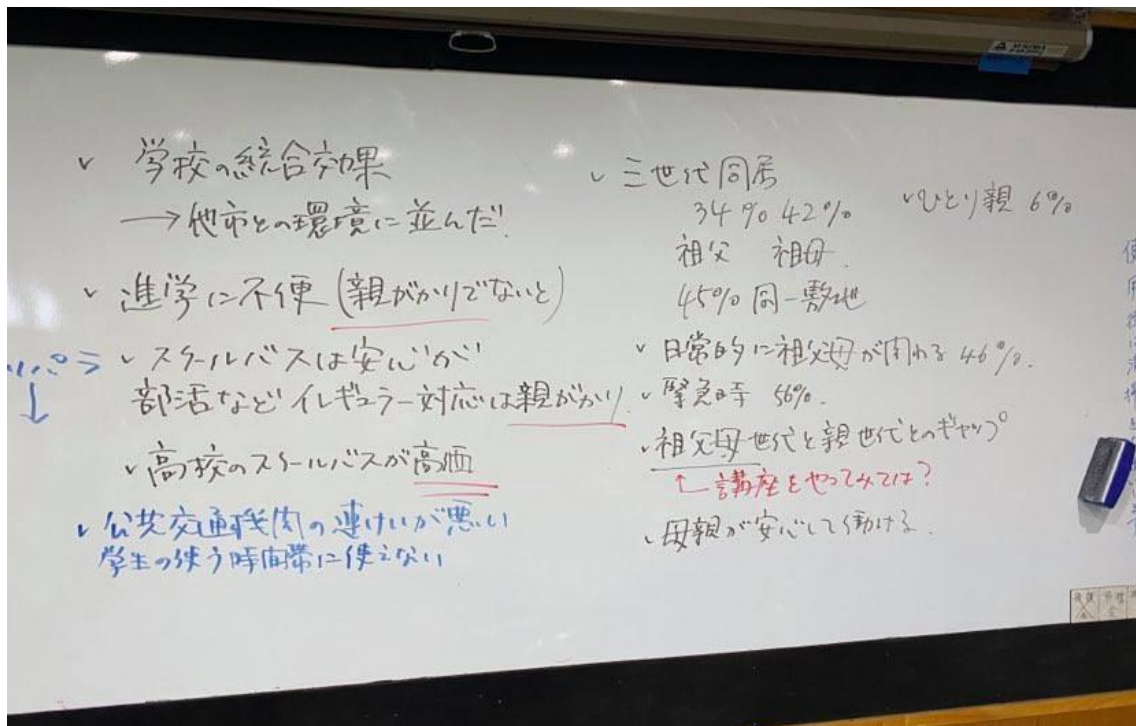 ✓ 学校の統合効果
→他市との環境に並んだ!
✓ 進学に不便(親がかりでないと)
✓ スクールバスは安心が
部活などイレギュラー対応は親がかり
✓ 高校のスクールバスが高価
✓ 公共交通機関の連けいが悪い
学生の使う時間帯に使えない
✓ 三世代同居
34% 42%
祖父 祖母
45% 同一敷地
✓ ひとり親 6%
✓ 日常的に祖父母が関わる 46%.
✓ 緊急時 56%.
✓ 祖父母世代と親世代とのギャップ
↑講座をやってみては?
✓ 母親が安心して働ける.